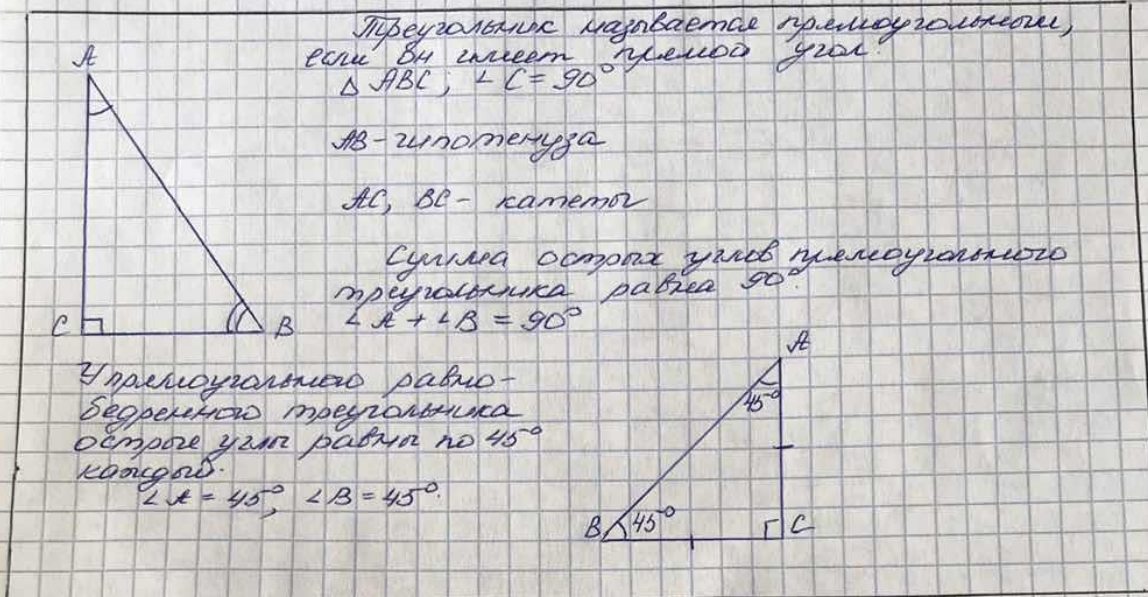 Треугольник называется прямоугольным,
если он имеет прямой угол.
△ ABC; ∠C = 90°
A
AB - гипотенуза
AC, BC - катеты
Сумма острых углов прямоугольного
треугольника равна 90°.
∠A + ∠B = 90°
C
B
У прямоугольного равно-
бедренного треугольника
острые углы равны по 45°
каждый.
∠A = 45°, ∠B = 45°.
A
45°
B 45°
C